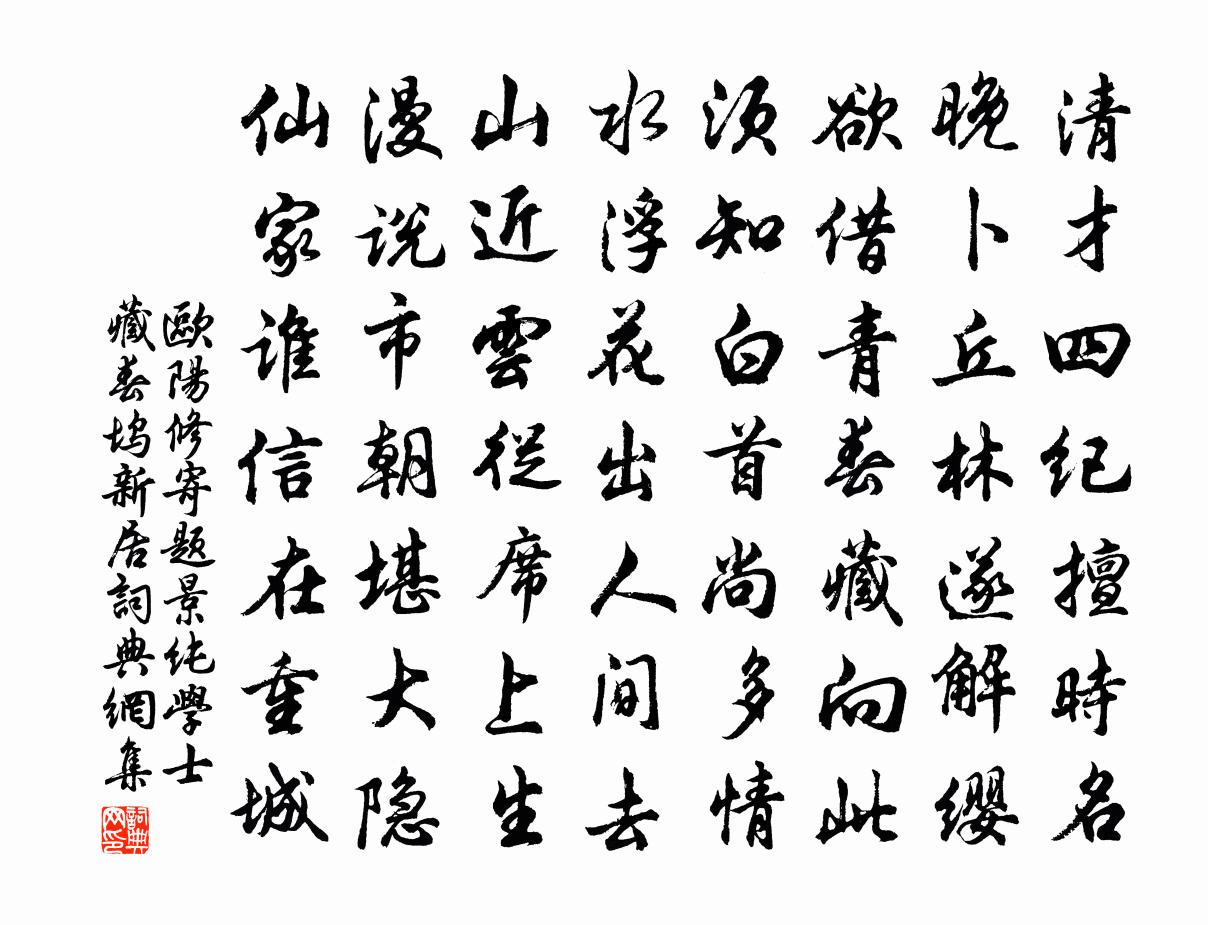 清才四纪擅時名
晚卜丘林遂解缨
欲借青春藏向此
须知白首尚多情
水浮花出人间去
山近雲從席上生
漫说市朝堪大隐
仙家谁信在重城
歐陽修寄题景纯學士
藏春坞新居詞典網集
詞典
网印